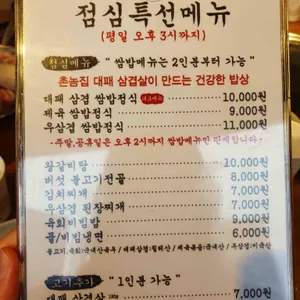 점심특선메뉴
(평일 오후 3시까지)
점심메뉴 "쌈밥메뉴는 2인분부터 가능"
촌놈집 대패 삼겹살이 만드는 건강한 밥상
대패 삼겹 쌈밥정식 10,000원
제육 쌈밥정식 9,000원
우삼겹 쌈밥정식 11,000원
-주말,공휴일은 오후 2시까지 쌈밥메뉴만 판매합니다-
왕갈비탕 10,000원
버섯 불고기전골 8,000원
김치찌개 7,000원
우삼겹 된장찌개 7,000원
육회비빔밥 9,000원
물/비빔냉면 6,000원
고기추가 "1인분 가능"
대패 삼겹살 7,000원